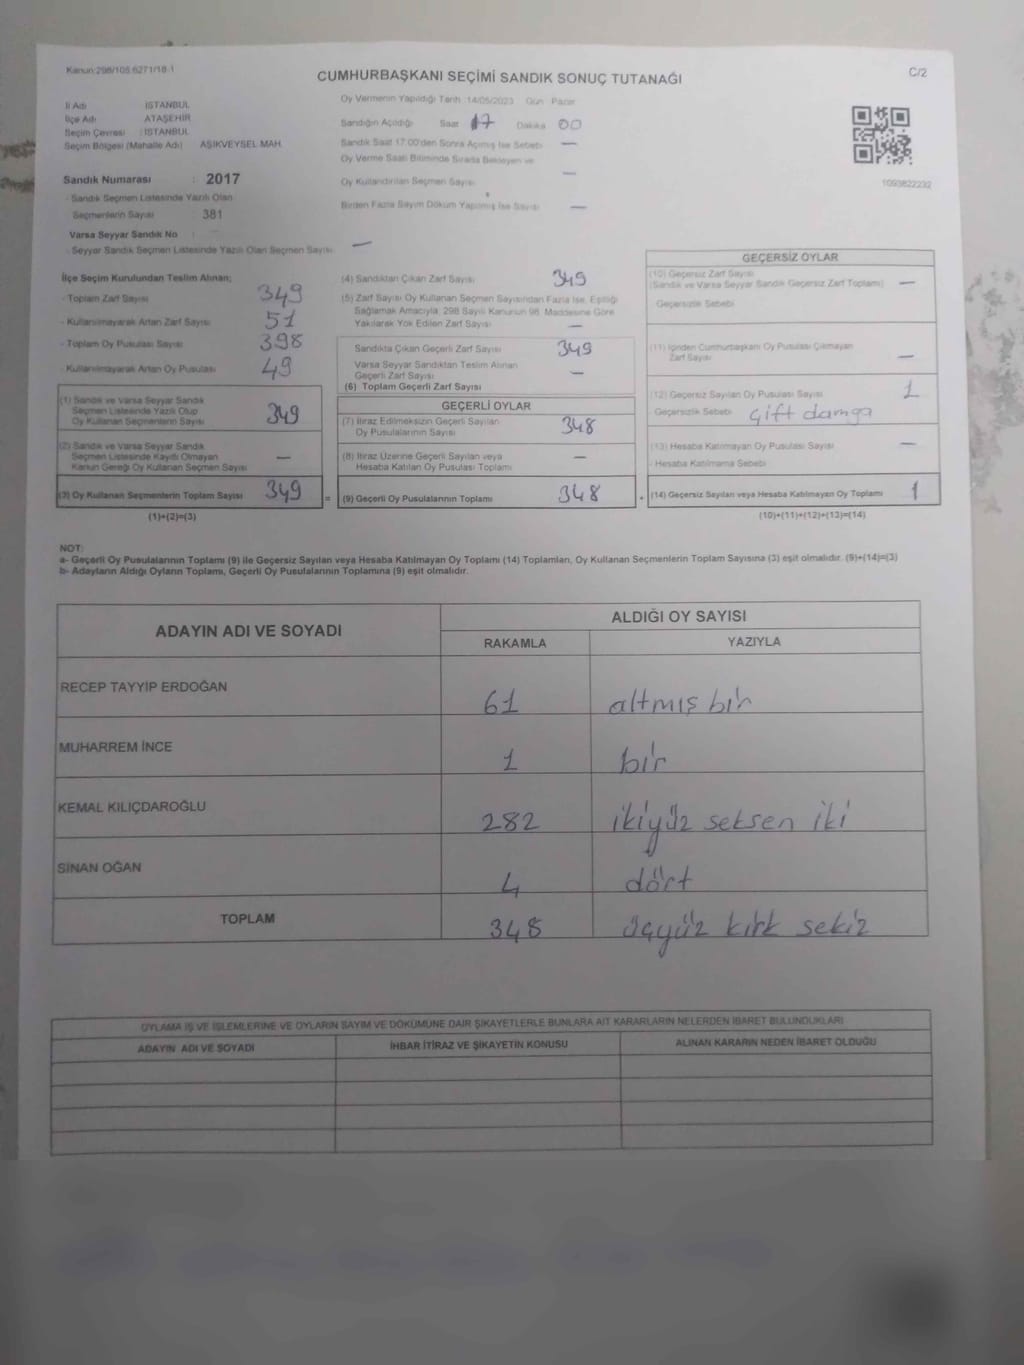 Kanun:298/105:6271/18-1
CUMHURBAŞKANI SEÇİMİ SANDIK SONUÇ TUTANAĞI
C/2
İl Adı İSTANBUL
İlçe Adı ATAŞEHİR
Seçim Çevresi : İSTANBUL
Seçim Bölgesi (Mahalle Adı) AŞIKVEYSEL MAH.
Sandık Numarası : 2017
- Sandık Seçmen Listesinde Yazılı Olan
Seçmenlerin Sayısı 381
Varsa Seyyar Sandık No
- Seyyar Sandık Seçmen Listesinde Yazılı Olan Seçmen Sayısı —
Oy Vermenin Yapıldığı Tarih :14/05/2023 Gün Pazar
Sandığın Açıldığı Saat 17 Dakika 00
Sandık Saat 17:00'den Sonra Açılmış İse Sebebi —
Oy Verme Saati Bitiminde Sırada Bekleyen ve
Oy Kullandırılan Seçmen Sayısı —
Birden Fazla Sayım Döküm Yapılmış İse Sayısı —
1093822232
İlçe Seçim Kurulundan Teslim Alınan;
- Toplam Zarf Sayısı 349
- Kullanılmayarak Artan Zarf Sayısı 51
- Toplam Oy Pusulası Sayısı 398
- Kullanılmayarak Artan Oy Pusulası 49
(1) Sandık ve Varsa Seyyar Sandık
Seçmen Listesinde Yazılı Olup
Oy Kullanan Seçmenlerin Sayısı 349
(2) Sandık ve Varsa Seyyar Sandık
Seçmen Listesinde Kayıtlı Olmayan
Kanun Gereği Oy Kullanan Seçmen Sayısı —
(3) Oy Kullanan Seçmenlerin Toplam Sayısı 349 =
(1)+(2)=(3)
(4) Sandıktan Çıkan Zarf Sayısı 349
(5) Zarf Sayısı Oy Kullanan Seçmen Sayısından Fazla İse, Eşitliği
Sağlamak Amacıyla; 298 Sayılı Kanunun 98. Maddesine Göre
Yakılarak Yok Edilen Zarf Sayısı —
Sandıkta Çıkan Geçerli Zarf Sayısı 349
Varsa Seyyar Sandıktan Teslim Alınan
Geçerli Zarf Sayısı —
(6) Toplam Geçerli Zarf Sayısı
GEÇERLİ OYLAR
(7) İtiraz Edilmeksizin Geçerli Sayılan
Oy Pusulalarının Sayısı 348
(8) İtiraz Üzerine Geçerli Sayılan veya
Hesaba Katılan Oy Pusulası Toplamı —
(9) Geçerli Oy Pusulalarının Toplamı 348 +
GEÇERSİZ OYLAR
(10) Geçersiz Zarf Sayısı
(Sandık ve Varsa Seyyar Sandık Geçersiz Zarf Toplamı) —
Geçersizlik Sebebi
(11) İçinden Cumhurbaşkanı Oy Pusulası Çıkmayan
Zarf Sayısı —
(12) Geçersiz Sayılan Oy Pusulası Sayısı 1
Geçersizlik Sebebi çift damga
(13) Hesaba Katılmayan Oy Pusulası Sayısı —
- Hesaba Katılmama Sebebi
(14) Geçersiz Sayılan veya Hesaba Katılmayan Oy Toplamı 1
(10)+(11)+(12)+(13)=(14)
NOT:
a- Geçerli Oy Pusulalarının Toplamı (9) ile Geçersiz Sayılan veya Hesaba Katılmayan Oy Toplamı (14) Toplamları, Oy Kullanan Seçmenlerin Toplam Sayısına (3) eşit olmalıdır. (9)+(14)=(3)
b- Adayların Aldığı Oyların Toplamı, Geçerli Oy Pusulalarının Toplamına (9) eşit olmalıdır.
ADAYIN ADI VE SOYADI ALDIĞI OY SAYISI
RAKAMLA YAZIYLA
RECEP TAYYİP ERDOĞAN 61 altmış bir
MUHARREM İNCE 1 bir
KEMAL KILIÇDAROĞLU 282 ikiyüz seksen iki
SİNAN OĞAN 4 dört
TOPLAM 348 üçyüz kırk sekiz
OYLAMA İŞ VE İŞLEMLERİNE VE OYLARIN SAYIM VE DÖKÜMÜNE DAİR ŞİKAYETLERLE BUNLARA AİT KARARLARIN NELERDEN İBARET BULUNDUKLARI
ADAYIN ADI VE SOYADI İHBAR İTİRAZ VE ŞİKAYETİN KONUSU ALINAN KARARIN NEDEN İBARET OLDUĞU